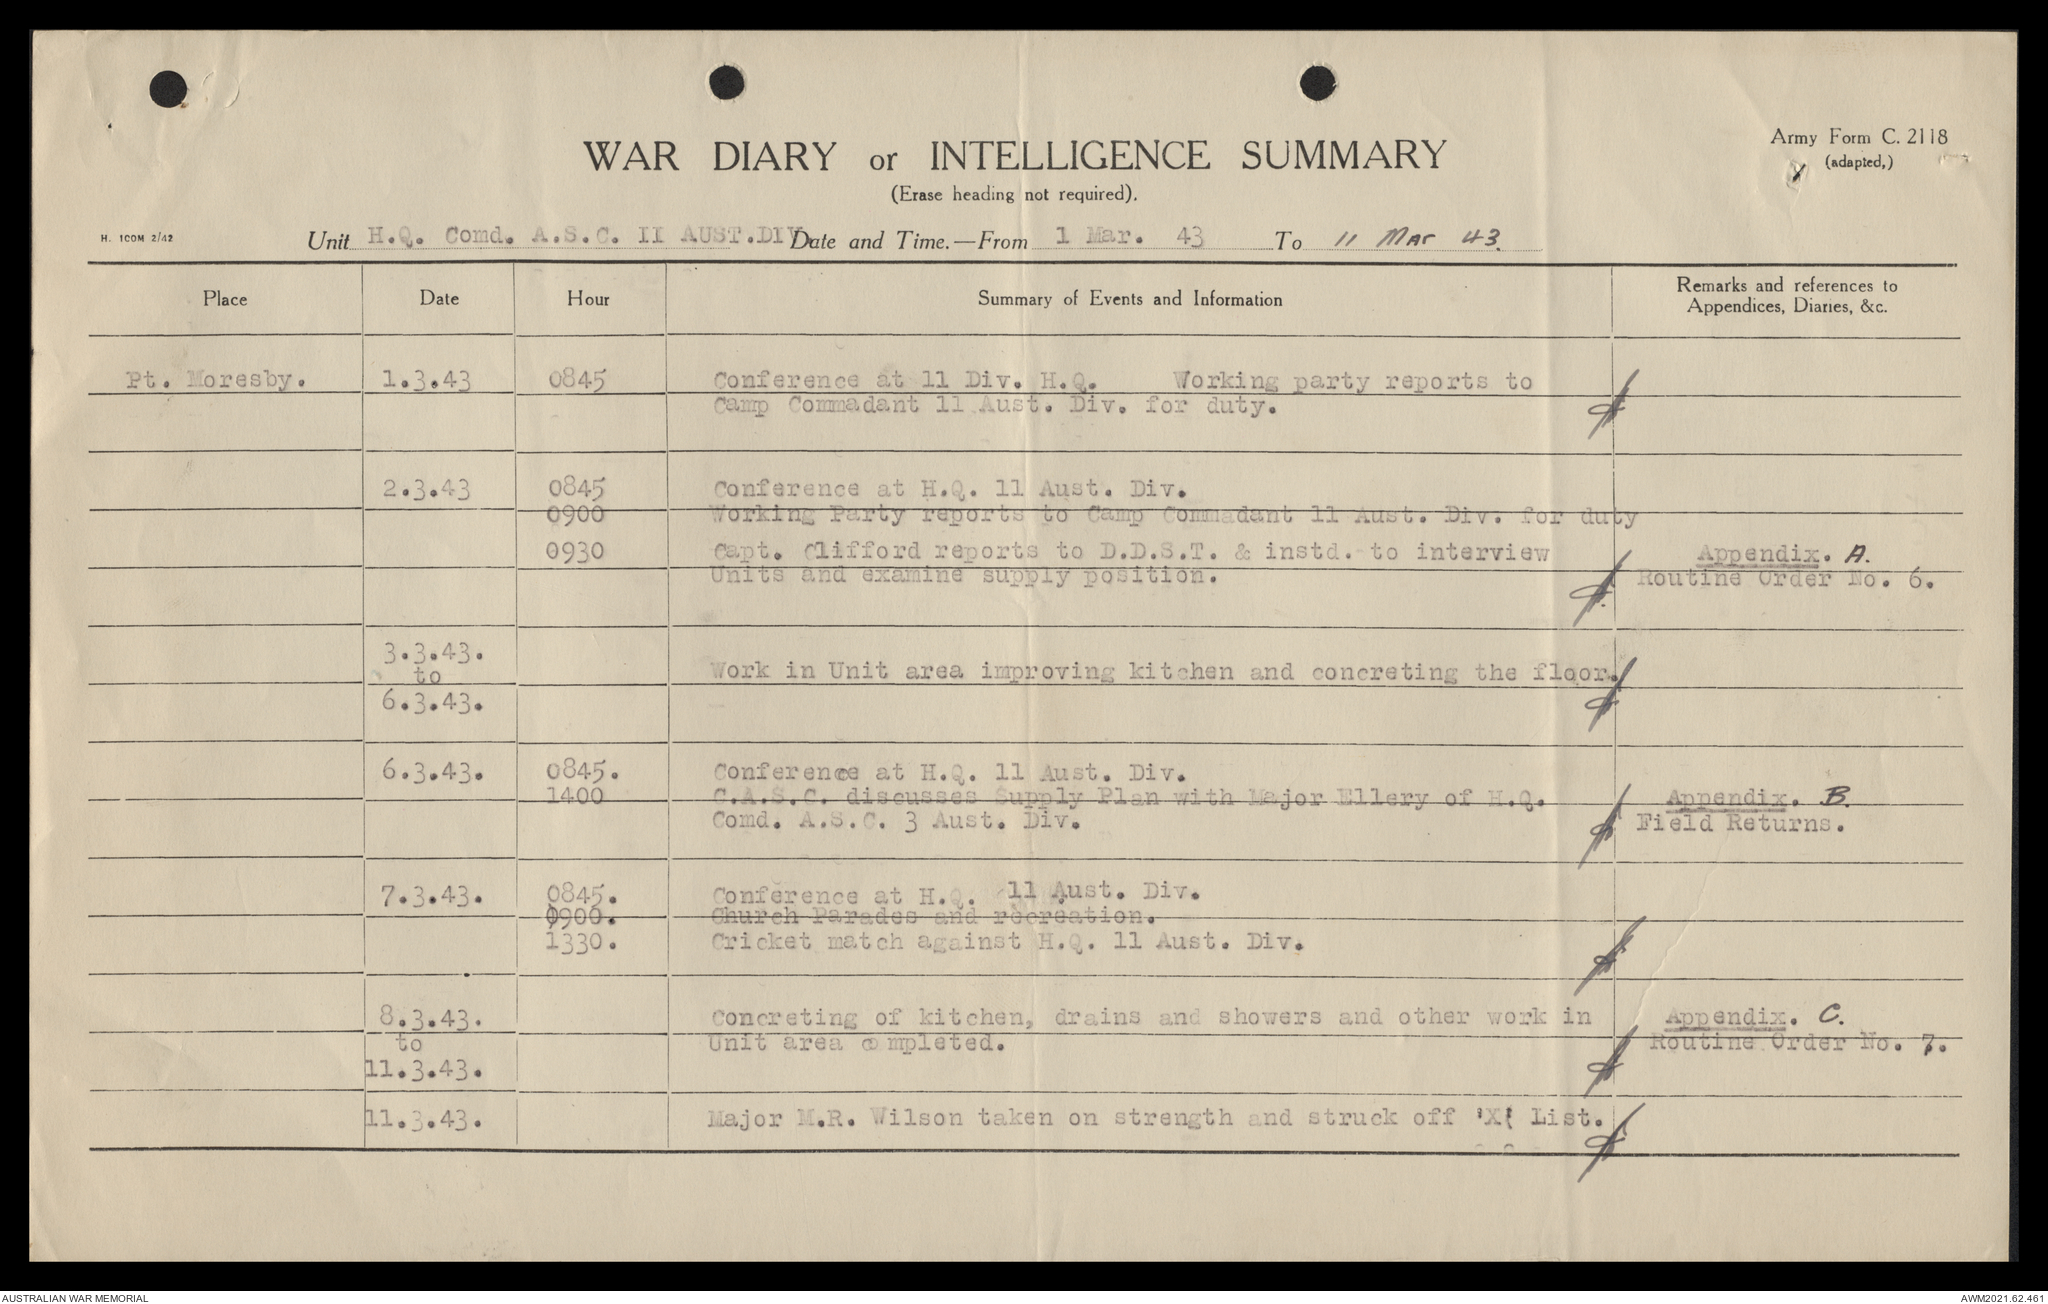 WAR DIARY or INTELLIGENCE SUMMARY
Army Form C. 2118
(adapted,)
(Erase heading not required).
H. 1COM 2/42
Unit H.Q. Comd. A.S.C. II AUST.DIV. Date and Time.—From 1 Mar. 43 To 11 Mar 43.
Place Date Hour Summary of Events and Information Remarks and references to
Appendices, Diaries, &c.
Pt. Moresby. 1.3.43 0845 Conference at 11 Div. H.Q. Working party reports to
Camp Commadant 11 Aust. Div. for duty.
2.3.43 0845 Conference at H.Q. 11 Aust. Div.
0900 Working Party reports to Camp Commadant 11 Aust. Div. for duty
0930 Capt. Clifford reports to D.D.S.T. & instd. to interview Appendix. A.
Units and examine supply position. Routine Order No. 6.
3.3.43.
to Work in Unit area improving kitchen and concreting the floor.
6.3.43.
6.3.43. 0845. Conference at H.Q. 11 Aust. Div.
1400 C.A.S.C. discusses Supply Plan with Major Ellery of H.Q. Appendix. B.
Comd. A.S.C. 3 Aust. Div. Field Returns.
7.3.43. 0845. Conference at H.Q. 11 Aust. Div.
0900. Church Parades and recreation.
1330. Cricket match against H.Q. 11 Aust. Div.
8.3.43. Concreting of kitchen, drains and showers and other work in Appendix. C.
to Unit area completed. Routine Order No. 7.
11.3.43.
11.3.43. Major M.R. Wilson taken on strength and struck off 'X' List.
AUSTRALIAN WAR MEMORIAL AWM2021.62.461